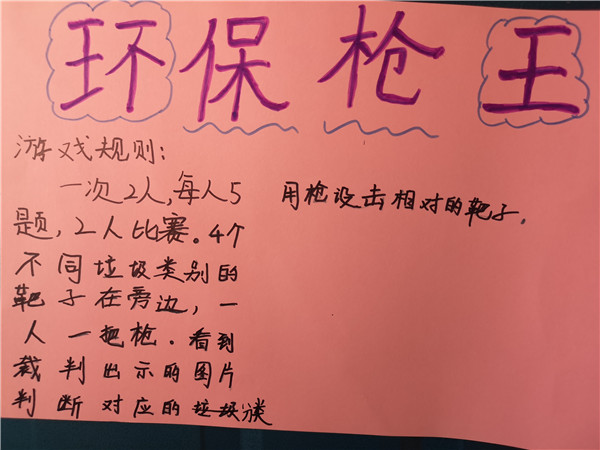 环保枪王
游戏规则：
一次2人,每人5
题，2人比赛。4个
不同垃圾类别的
靶子在旁边，一
人一把枪.看到
裁判出示的图片
判断对应的垃圾分类
用枪设击相对的靶子,